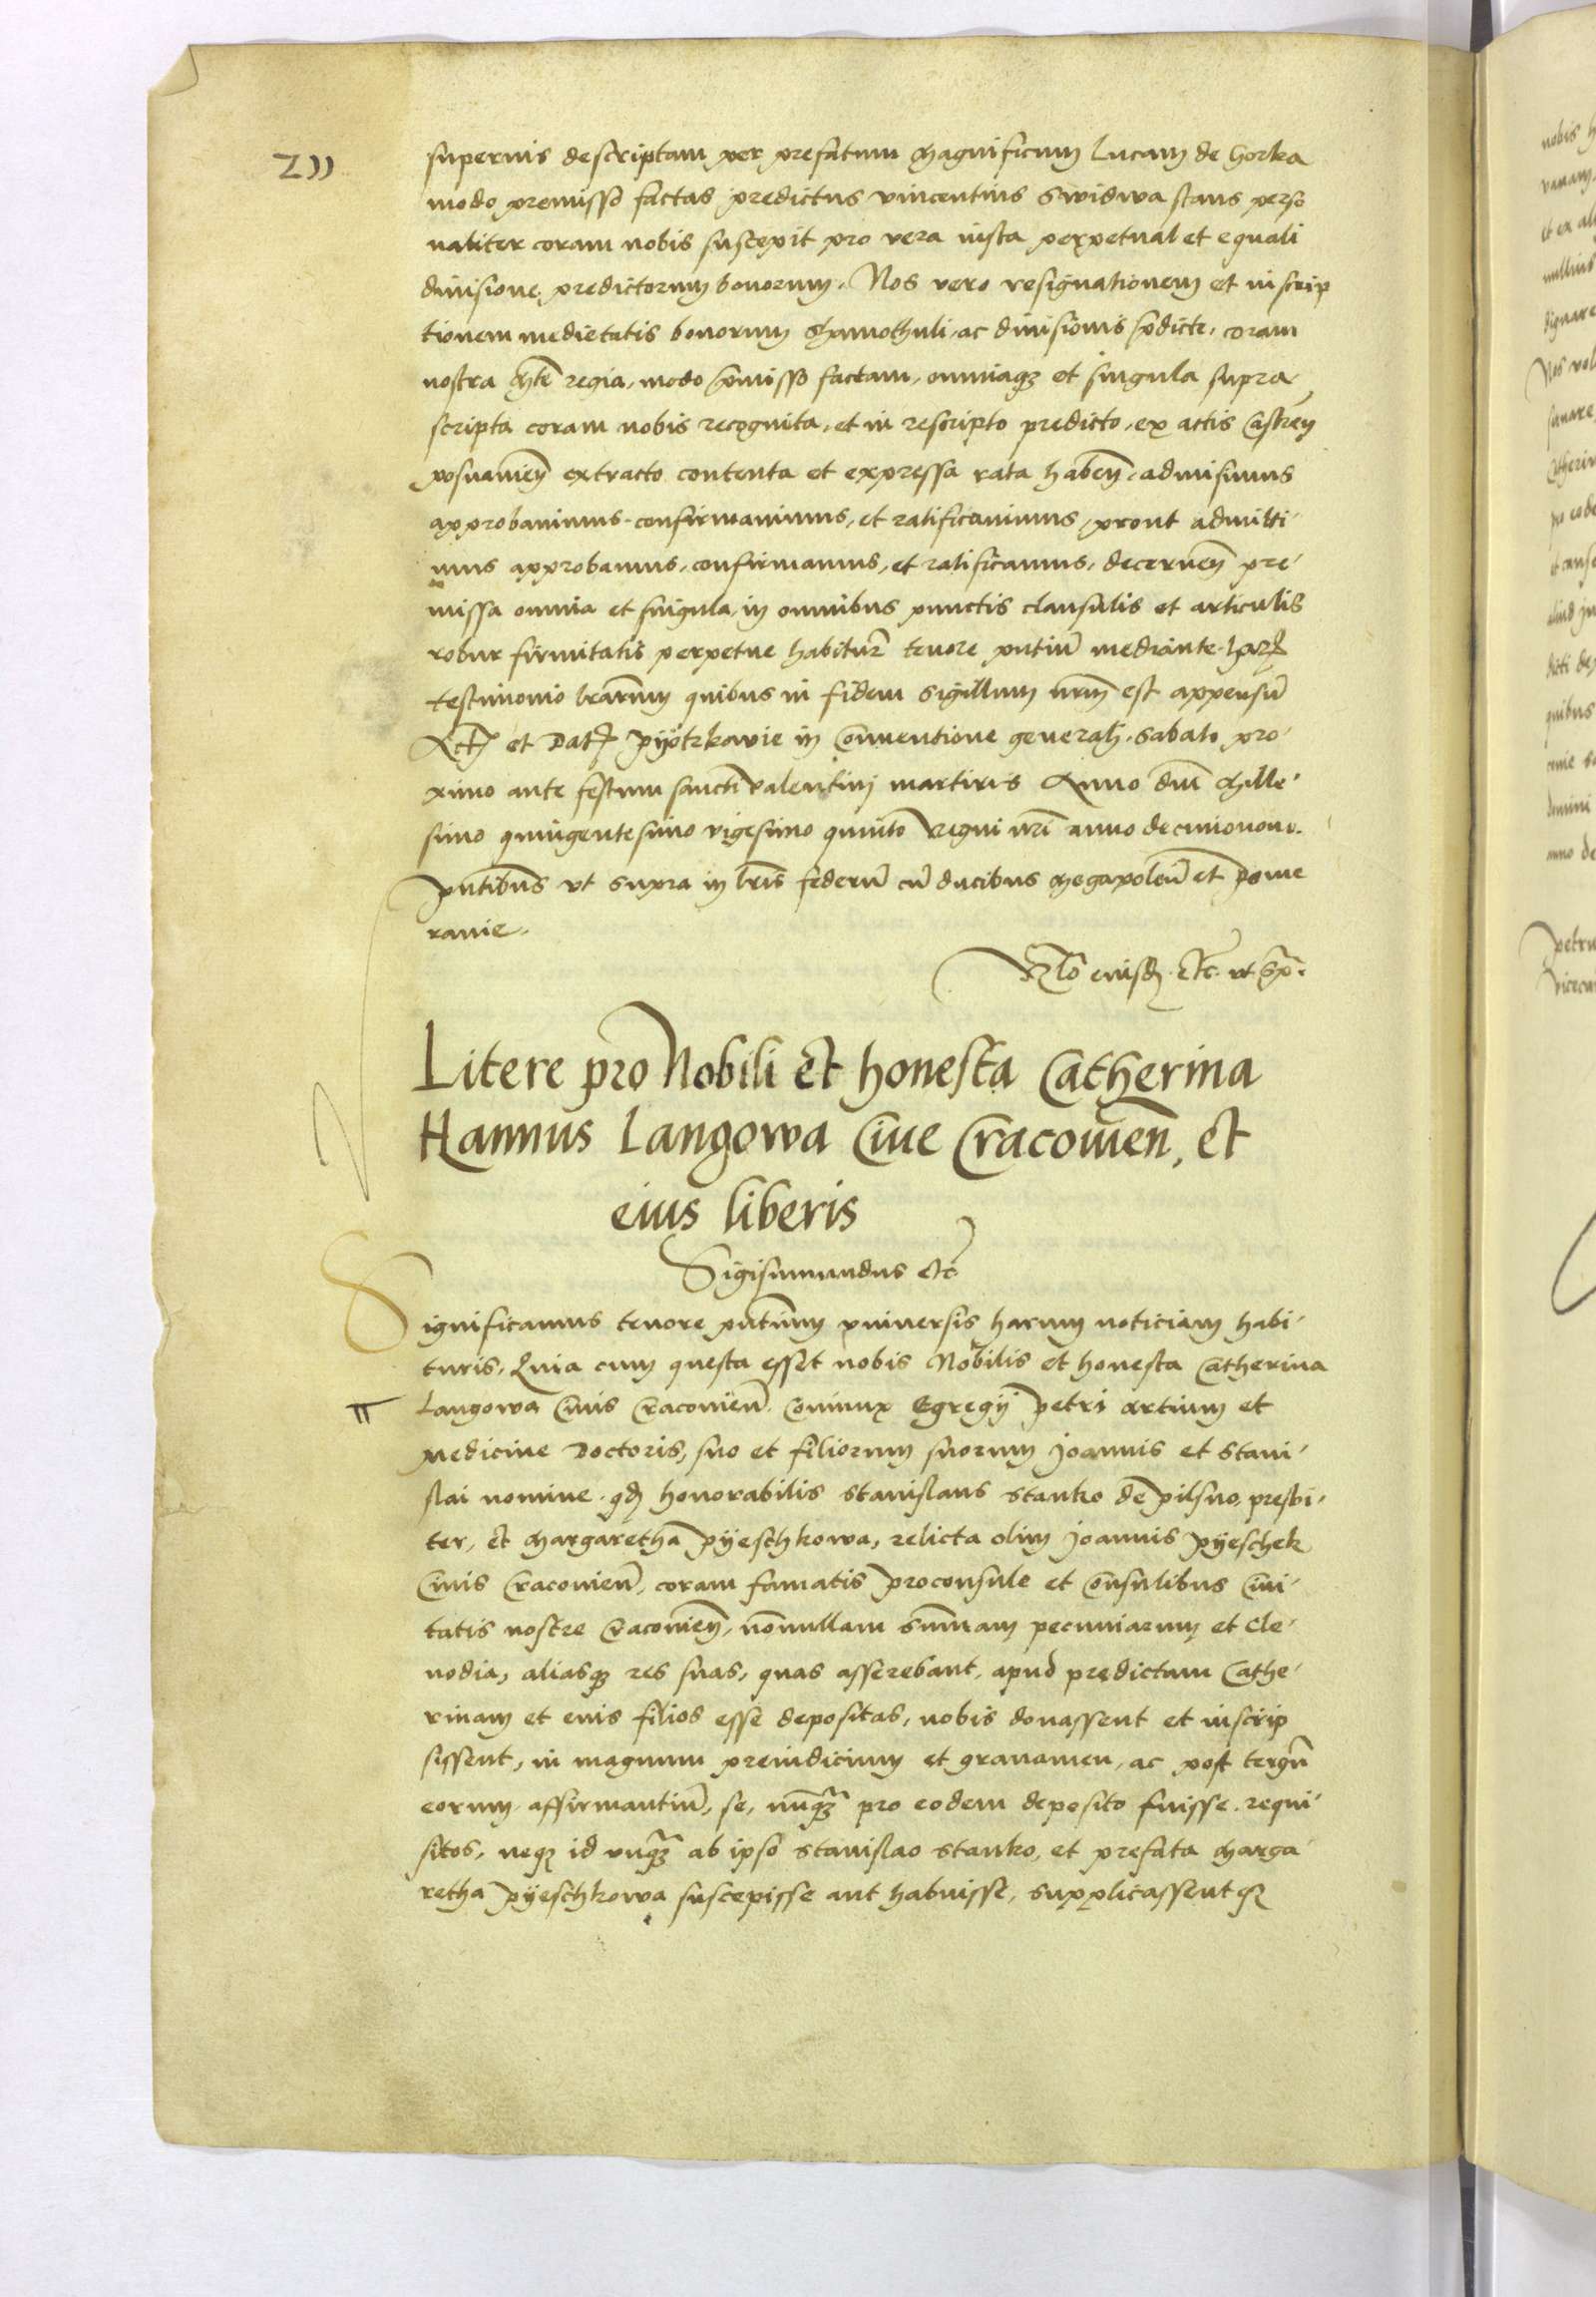 211
supernis descriptam per prefatum Magnificum Lucam de Gorka
modo premisso factas predictus vincentius Swidwa stans perso
naliter coram nobis suscepit pro vera iusta perpetual et equali
diuisione predictorum bonorum. Nos vero resignationem et inscrip
tionem medietatis bonorum Schamothuli, ac diuisionis p̄dicte, coram
nostra Mte regia, modo p̄misso factam, omniaq; et singula supra
scripta coram nobis recognita, et in rescripto predicto, ex actis Castren̄
posnanien̄ extracto contenta et expressa rata haben̄, admisimus
approbauimus, confirmauimus, et ratificauimus, prout admitti-
mus approbamus, confirmamus, et ratificamus, decernen̄ pre-
missa omnia et singula, in omnibus punctis clausulis et articulis
robur firmitatis perpetue habitur̄ tenore pn̄tiū mediante. harꝝ
testimonio lr̄arum quibus in fidem sigillum nr̄m est appensū
Act̄ et Dat̄ Pÿotrkovie in Conuentione generali, sabato pro-
ximo ante festum sancti valentini martiris Anno dn̄i Mille-
simo quingentesimo vigesimo quinto Regni nr̄i anno decimonono.
Pn̄tibus vt supra in lr̄is federū cū ducibus Megapoleū et Pome
ranie.
Rlō eiusdē. etc. vt sᵖ.
Litere pro Nobili et honesta Catherina
Hannus Langowa Ciue Cracouien̄, et
eius liberis
Sigismundus etc̄
Significamus tenore pn̄tium vniuersis harum noticiam habi-
turis, Quia cum questa esset nobis Nobilis et honesta Catherina
Langowa Ciuis Cracouien̄. Coniunx Egregÿ Petri artium et
Medicine Doctoris, suo et filiorum suorum Joannis et Stani-
slai nomine. qd̄ honorabilis Stanislaus Stanko de pilsno, presbi-
ter, et Margaretha Pÿeschkowa, relicta olim Joannis Pÿeschek
Ciuis Cracouien̄, coram famatis Proconsule et Consulibus Ciui-
tatis nostre Cracouien̄, nōnullam sum̄am pecuniarum et Cle-
nodia, aliasq; res suas, quas asserebant, apud predictam Cathe-
rinam et eius filios esse depositas, nobis donassent et inscrip
sissent, in magnum preiudicium et grauamen, ac post tergū
eorum, affirmantiū, se, nūq̄ꝫ pro eodem deposito fuisse requi-
sitos, neq; id vnq̄ꝫ ab ipso Stanislao Stanko, et prefata Marga-
retha Pÿeschkowa suscepisse aut habuisse, supplicassentq;